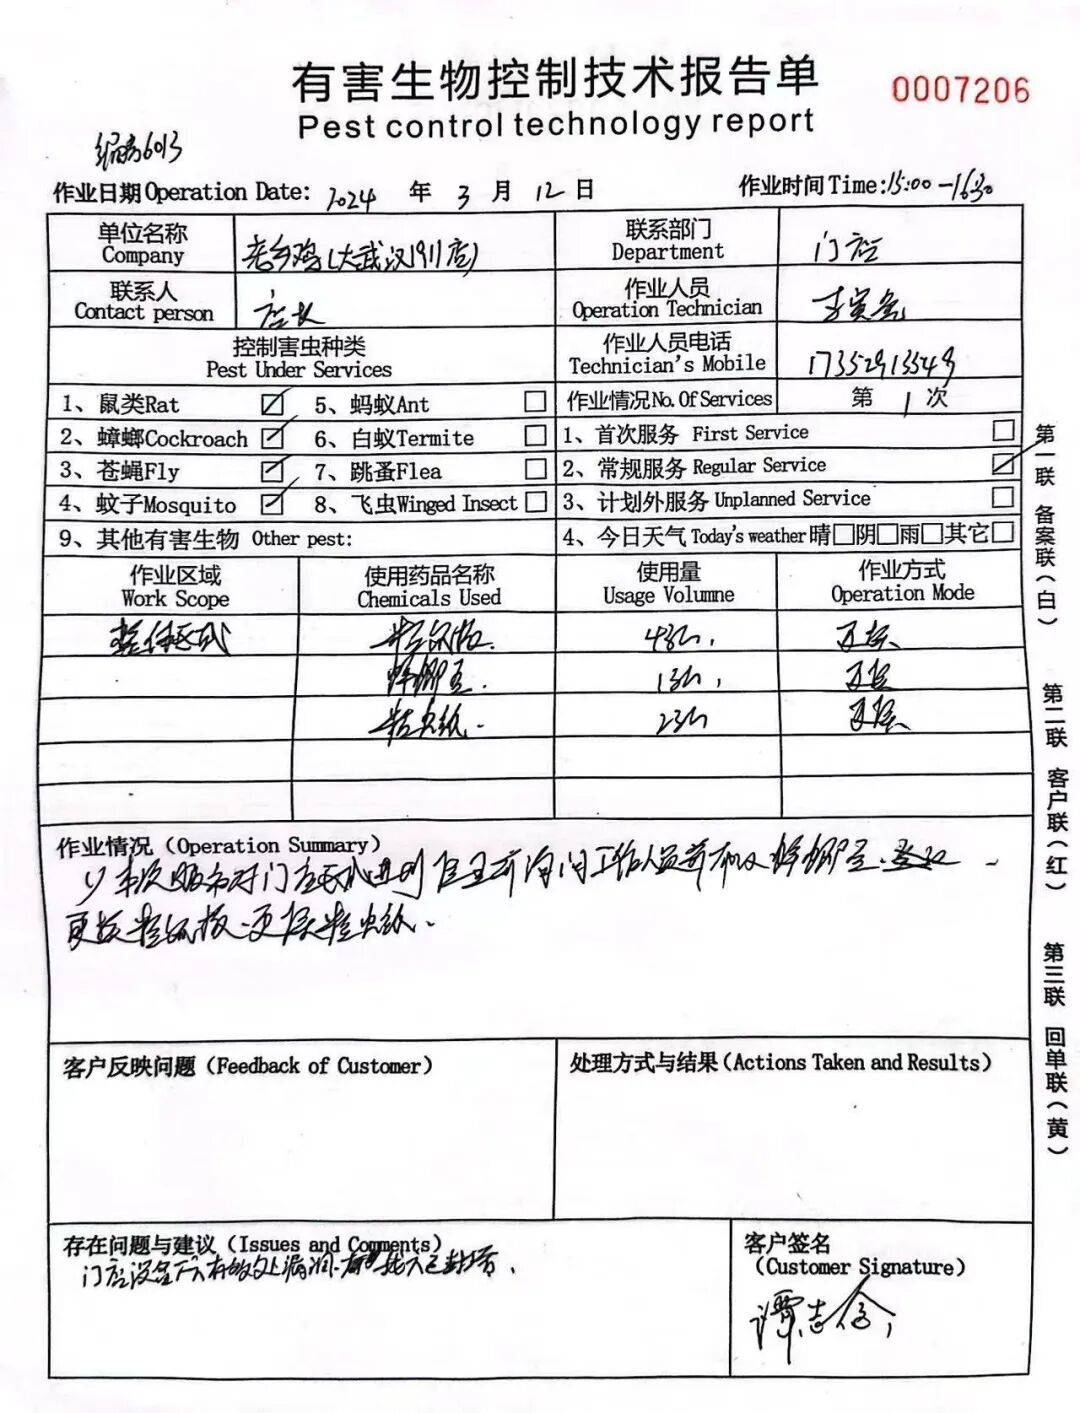 有害生物控制技术报告单
0007206
Pest control technology report
编号6013
作业日期Operation Date: 2024 年 3 月 12 日
作业时间Time:15:00-16:30
单位名称 Company 老乡鸡(大武汉1911店)
联系部门 Department 门店
联系人 Contact person 店长
作业人员 Operation Technician 李
控制害虫种类 Pest Under Services
作业人员电话 Technician's Mobile 17352913549
1、鼠类Rat ☑ 5、蚂蚁Ant □
作业情况No.Of Services 第 1 次
2、蟑螂Cockroach ☑ 6、白蚁Termite □
1、首次服务 First Service □
3、苍蝇Fly ☑ 7、跳蚤Flea □
2、常规服务 Regular Service ☑
4、蚊子Mosquito ☑ 8、飞虫Winged Insect □
3、计划外服务 Unplanned Service □
9、其他有害生物 Other pest:
4、今日天气 Today's weather 晴□阴□雨□其它□
作业区域 Work Scope 使用药品名称 Chemicals Used 使用量 Usage Volumne 作业方式 Operation Mode
整体区域 粘鼠板. 4张, 更换
蟑螂屋. 1张, 更换
粘虫纸. 2张 更换
作业情况 (Operation Summary)
1)本次服务对门店区域进行 询问工作人员并布放蟑螂屋.
更换粘鼠板.更换粘虫纸.
客户反映问题 (Feedback of Customer)
处理方式与结果 (Actions Taken and Results)
存在问题与建议 (Issues and Comments)
门店
客户签名
(Customer Signature)
谭志
第一联 备案联(白)
第二联 客户联(红)
第三联 回单联(黄)